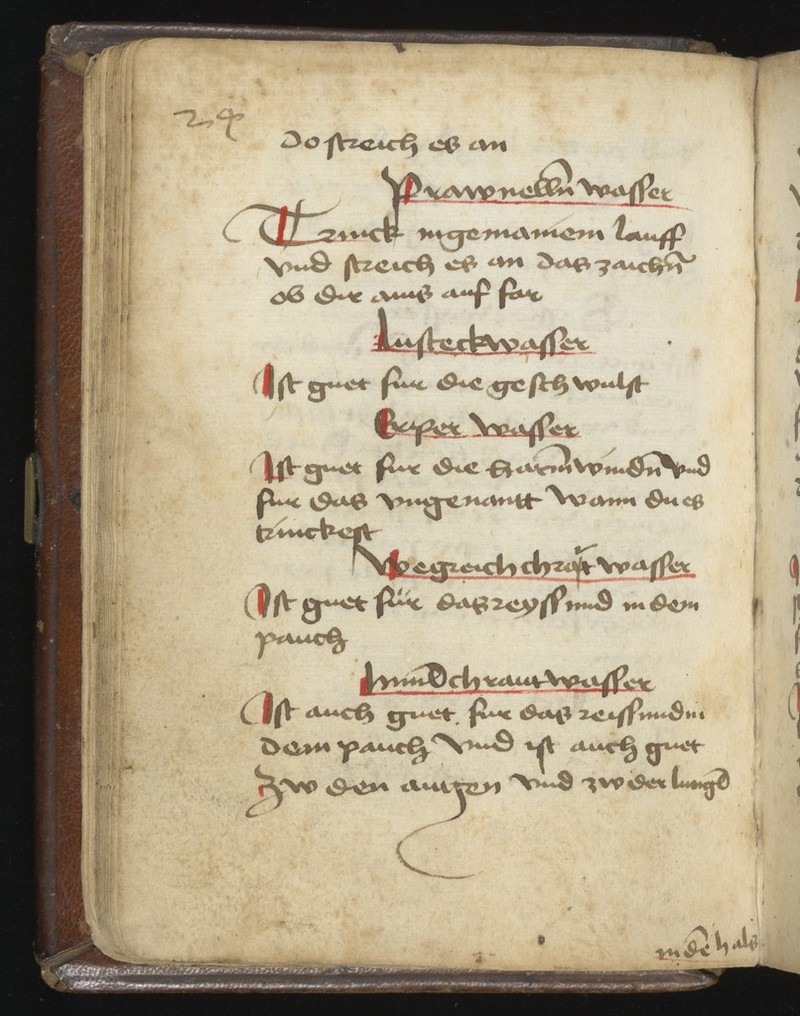 24
do streich es an
Prawnelln̄ wasser
Trinck ingemainem lauff
vnd streich es an das zaichn̄
ob dir ains auf far
Lusteckwasser
Ist guet fur die geschwulst
wasser
Ist guet fur die harmwindn̄ vnd
fur das vngenantt wann du es
trinckest
Wegreich chrawt wasser
Ist guet für das reyssund in dem
pauch
chrautwasser
Ist auch guet fur das reissund in
dem pauch vnd ist auch guet
zw den augen vnd zw der lungl
in dē hals